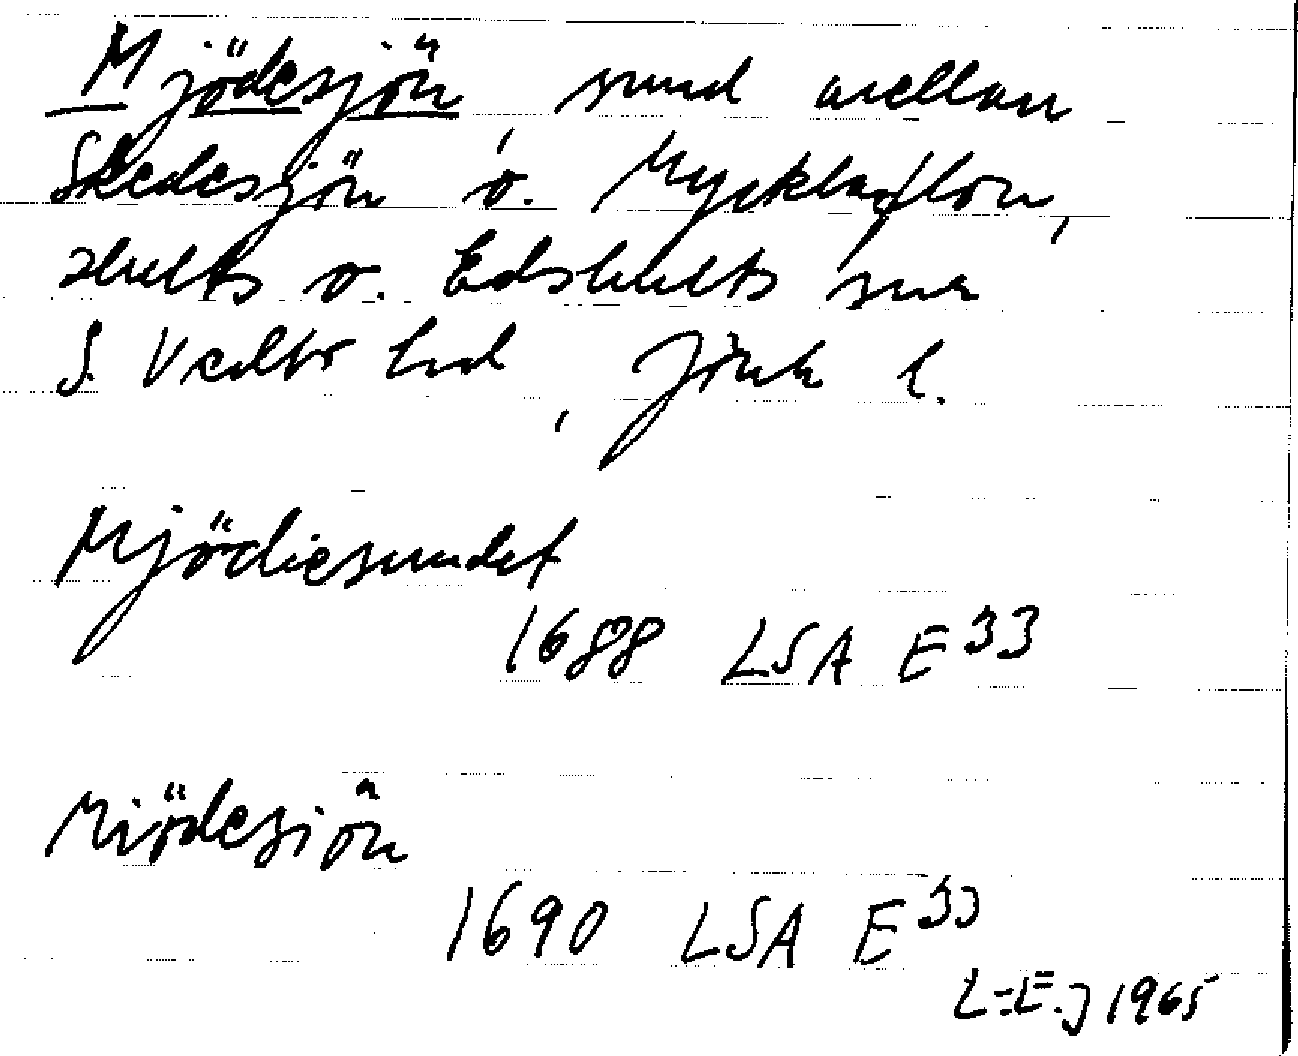 Mjödesjön, sund mellan
Skedesjön o. Mycklaflon,
Hults o. Edshults snr
S. Vedbo hd, Jönk l.
Mjödiesundet
1688 LSA E 33
Miödesiön
1690 LSA E 33
L-E.J 1965